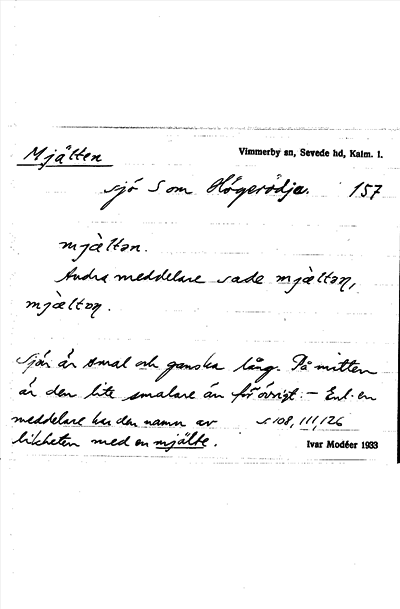 Mjälten
Vimmerby sn, Sevede hd, Kalm. l.
sjö S om Högerödja. 157
mjàltən.
Andra meddelare sade mjàltən,
mjàlton.
Sjön är smal och ganska lång. På mitten
är den lite smalare än för övrigt. – Enl. en
meddelare har den namn av s 108, 111, 126
likheten med en mjälte.
Ivar Modéer 1933